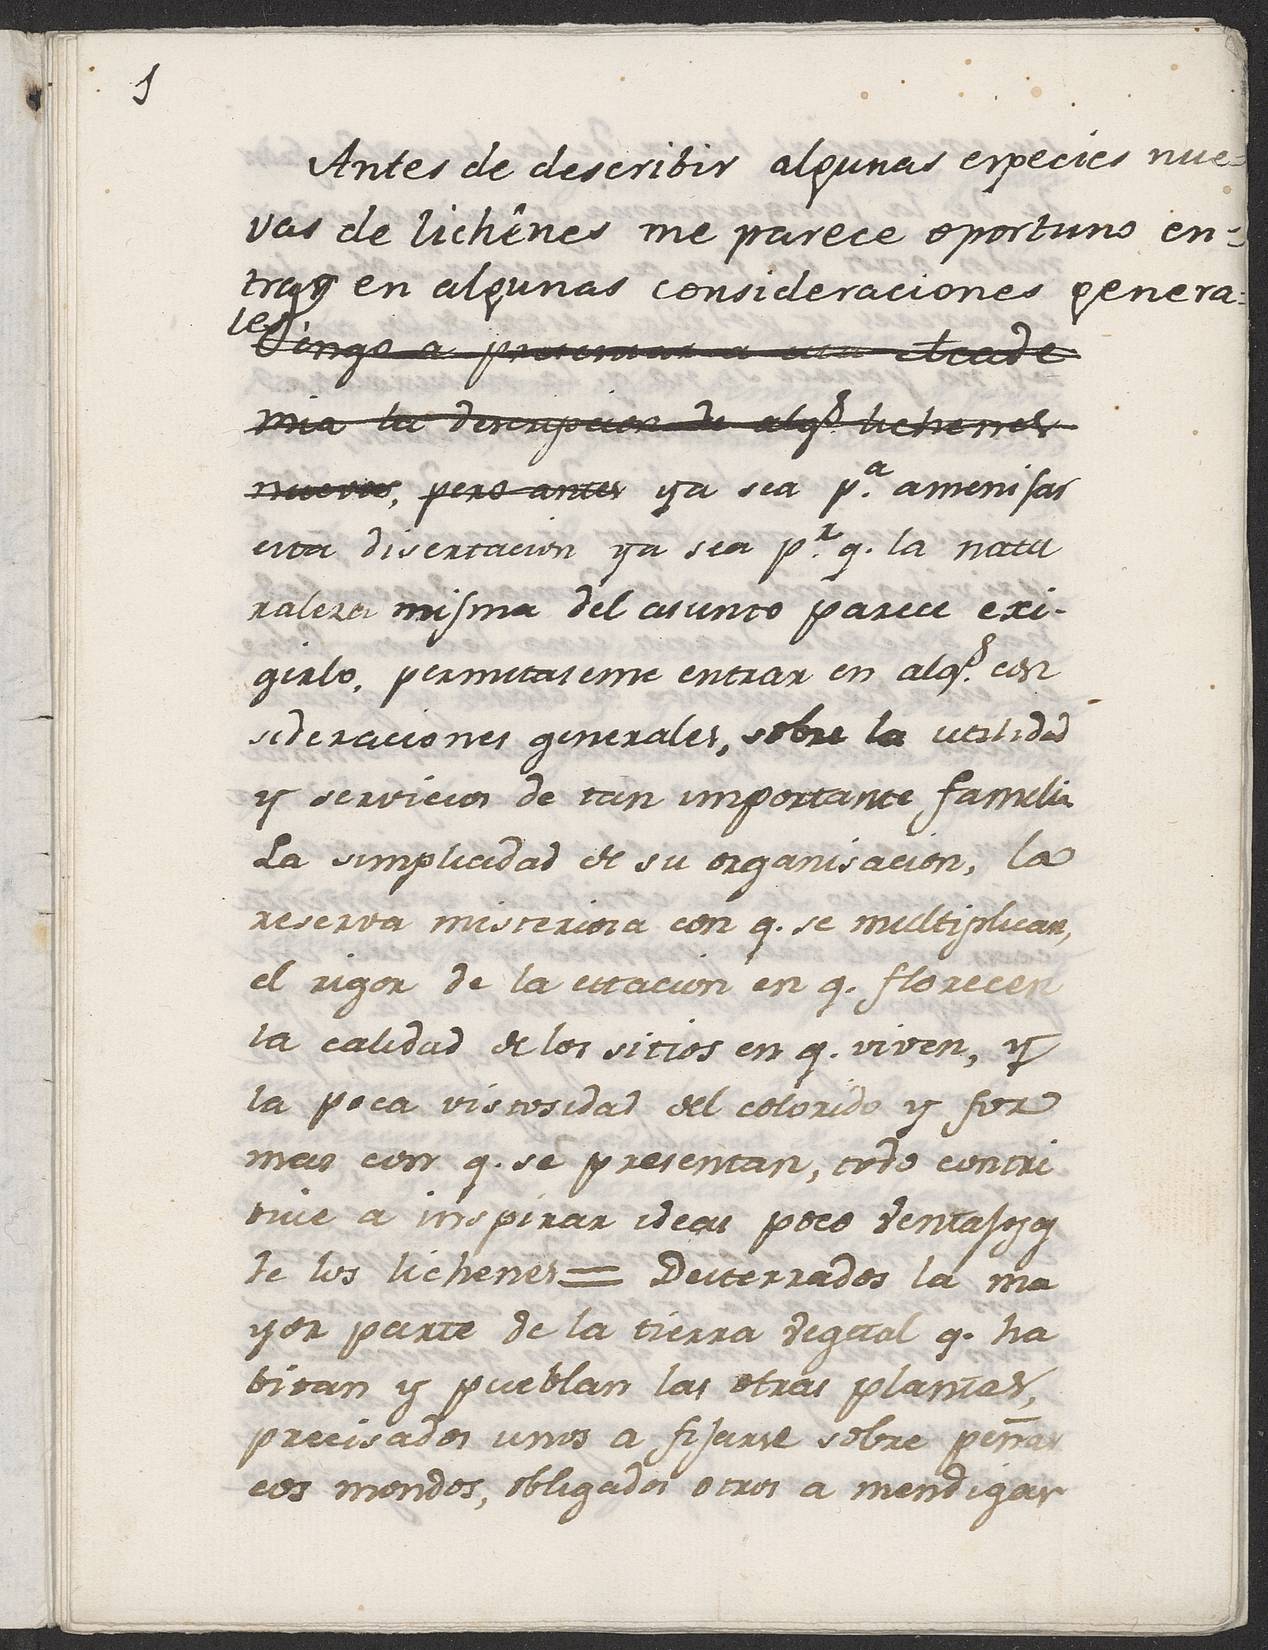 1
Antes de describir algunas especies nue=
vas de lichênes me parece oportuno en=
trar en algunas consideraciones genera=
les.
Vengo a presentar a esta Acade
mia la descripcion de algs. lichenes
nuevos, pero antes ya sea p.a amenisar
esta disertacion ya sea p.r q. la natu
raleza misma del asunto parece exi-
girlo, permitaseme entrar en algs. con
sideraciones generales, sobre la utilidad
y servicios de tan importante familia
La simplicidad de su organisacion, la
reserva misteriosa con q. se multiplican,
el rigor de la estacion en q. florecen
la calidad de los sitios en q. viven, y
la poca vistosidad del colorido y for
mas con q. se presentan, todo contri
buie a inspirar ideas poco ventajosas
de los lichenes = Desterrados la ma
yor parte de la tierra vegetal q. ha
bitan y pueblan las otras plantas,
precisados unos a fijarse sobre peñas
cos mondos, obligados otros a mendigar